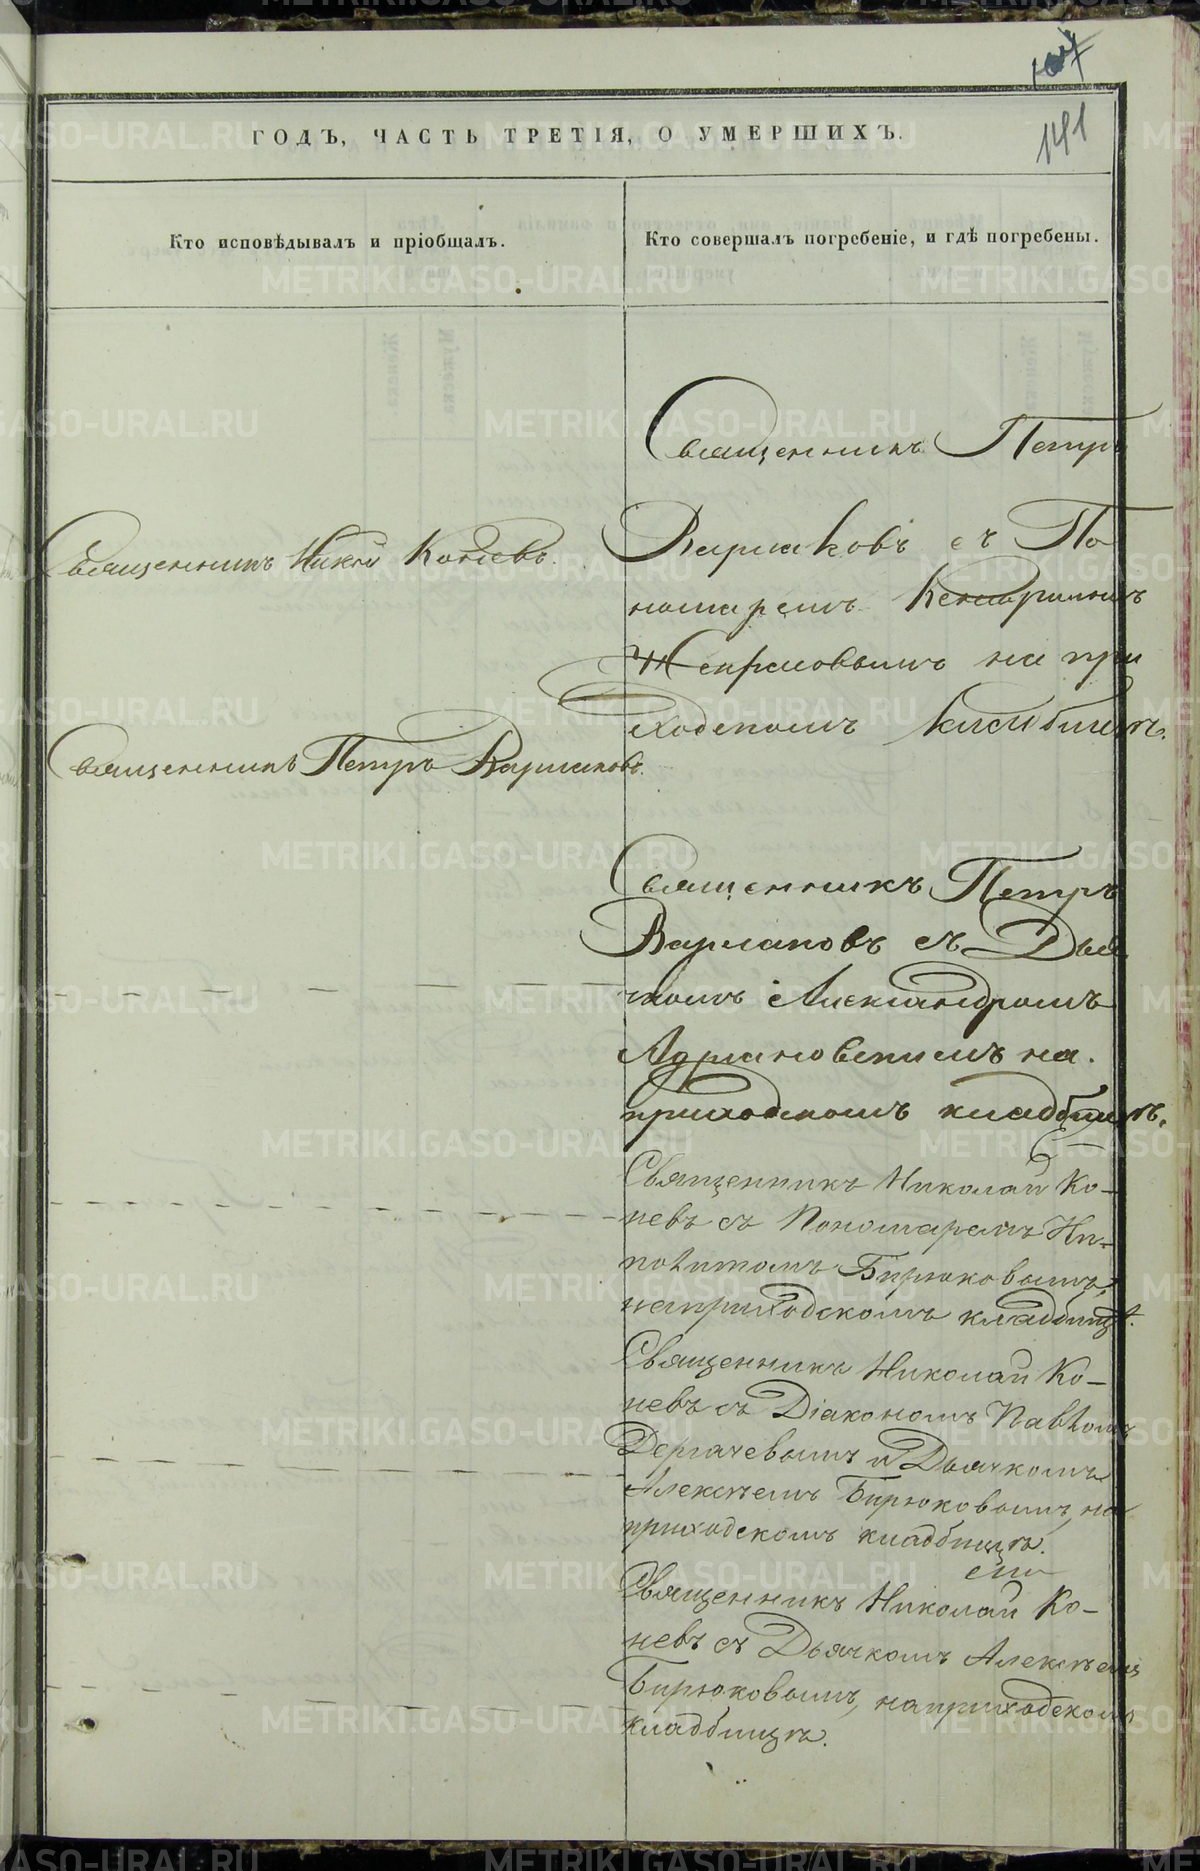 141
ГОДЪ, ЧАСТЬ ТРЕТІЯ, О УМЕРШИХЪ.
Кто исповѣдывалъ и пріобщалъ.
Кто совершалъ погребеніе, и гдѣ погребены.
Священникъ Петръ
Варлаковъ съ По
номаремъ
на при
ходскомъ кладбищѣ.
Священникъ Коневъ.
Священникъ Петръ Варлаковъ.
Священникъ Петръ
Варлаковъ съ Дья
чкомъ Александромъ
Адріановскимъ на
приходскомъ кладбищѣ.
Священникъ Николай Ко-
невъ съ Пономаремъ Ип-
политомъ Бирюковымъ,
на приходскомъ кладбищѣ.
Священникъ Николай Ко-
невъ съ Діакономъ Павломъ
Дергачевымъ и Дьячкомъ
Алексѣемъ Бирюковымъ, на
приходскомъ кладбищѣ.
Священникъ Николай Ко-
невъ съ Дьячкомъ Алексѣемъ
Бирюковымъ, на приходскомъ
кладбищѣ.
METRIKI.GASO-URAL.RU